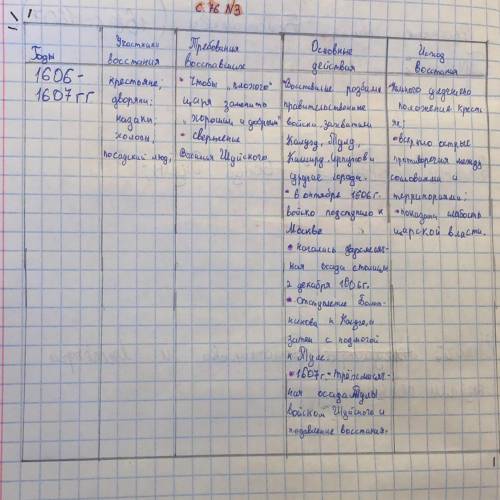 с. 76 №3
Годы
Участники
восстания
Требования
восставших
Основные
действия
Исход
восстания
1606-
1607 гг
крестьяне,
дворяни;
казаки;
холопы,
посадский люд,
• Чтобы „плохого"
царя заменить
„хорошим и добрым"
• свержение
Василия Шуйского.
Восставшие разбили
правительственные
войска, захватили
Калугу, Тулу,
Каширу, Серпухов и
другие города.
• в октябре 1606г.
войско подступило к
Москве
• началась двухмесяч-
ная осада столицы
2 декабря 1606г.
• Отступление Болот-
никова к Калуге, а
затем с подмогой
к Туле.
• 1607 г. - трёхмесяч-
ная осада Тулы
войском Шуйского и
подавление восстания.
положение кресть
яне;
• острые
противоречия между
сословиями и
территориями;
• показали слабость
царской власти.